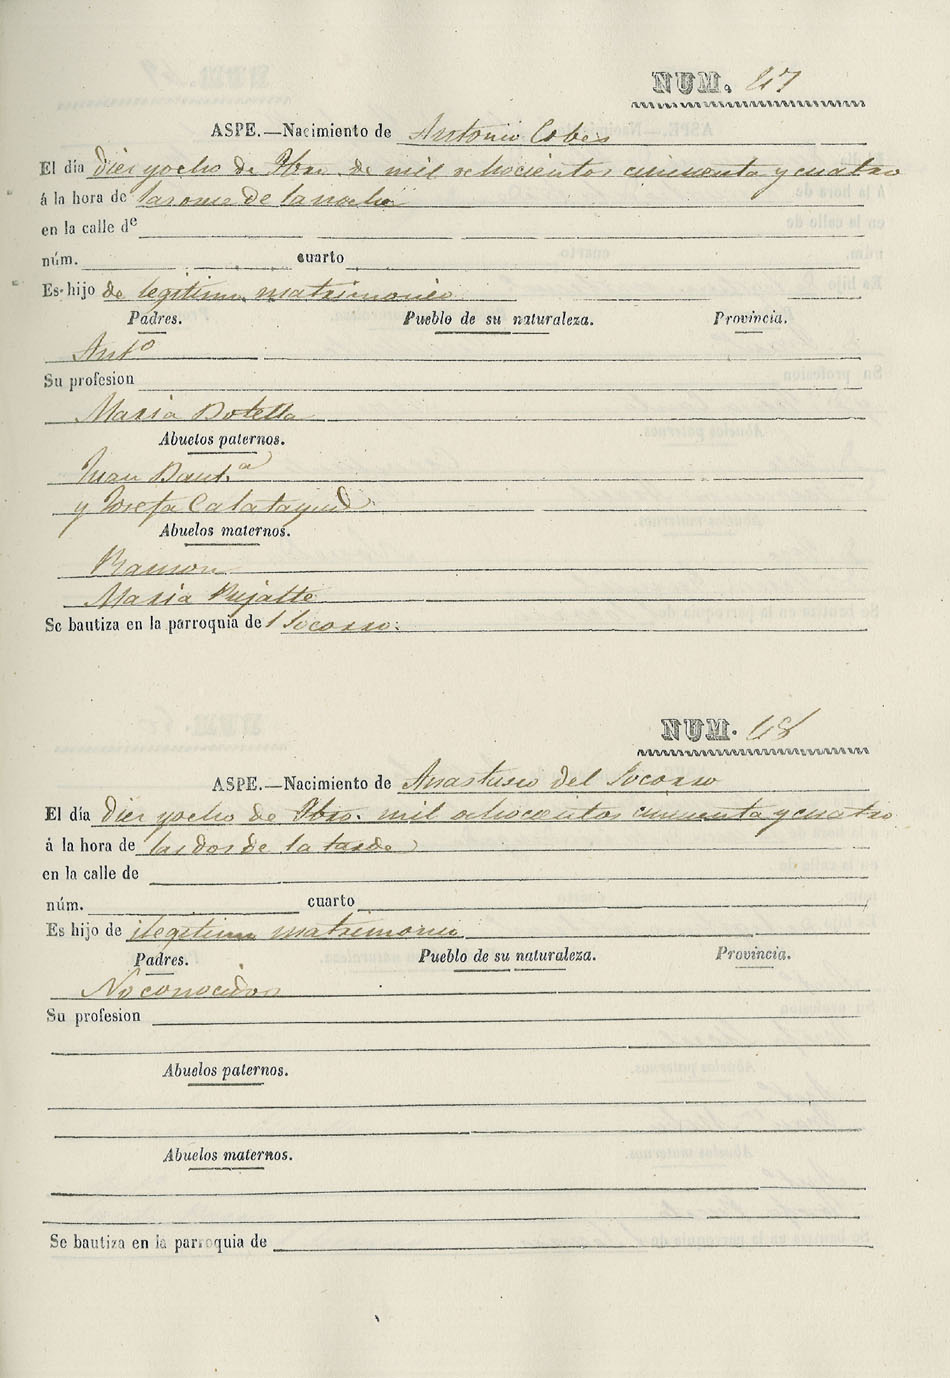 NUM. 47
ASPE.—Nacimiento de Antonio Cobes
El día diez y ocho de 9bre. de mil ochocientos cincuenta y cuatro
á la hora de las once de la noche
en la calle de
núm. cuarto
Es hijo de legitimo matrimonio
Padres. Pueblo de su naturaleza. Provincia.
Antº
Su profesion
Maria Botella
Abuelos paternos.
Juan Bautª
y Josefa Calatayud
Abuelos maternos.
Ramon
Maria Pujalte
Se bautiza en la parroquia de l Socorro.
NUM. 48
ASPE.—Nacimiento de Anastasio del Socorro
El día diez y ocho de 9bre. mil ochocientos cincuenta y cuatro
á la hora de las dos de la tarde
en la calle de
núm. cuarto
Es hijo de ilegitimo matrimonio
Padres. Pueblo de su naturaleza. Provincia.
No conocidos
Su profesion
Abuelos paternos.
Abuelos maternos.
Se bautiza en la parroquia de